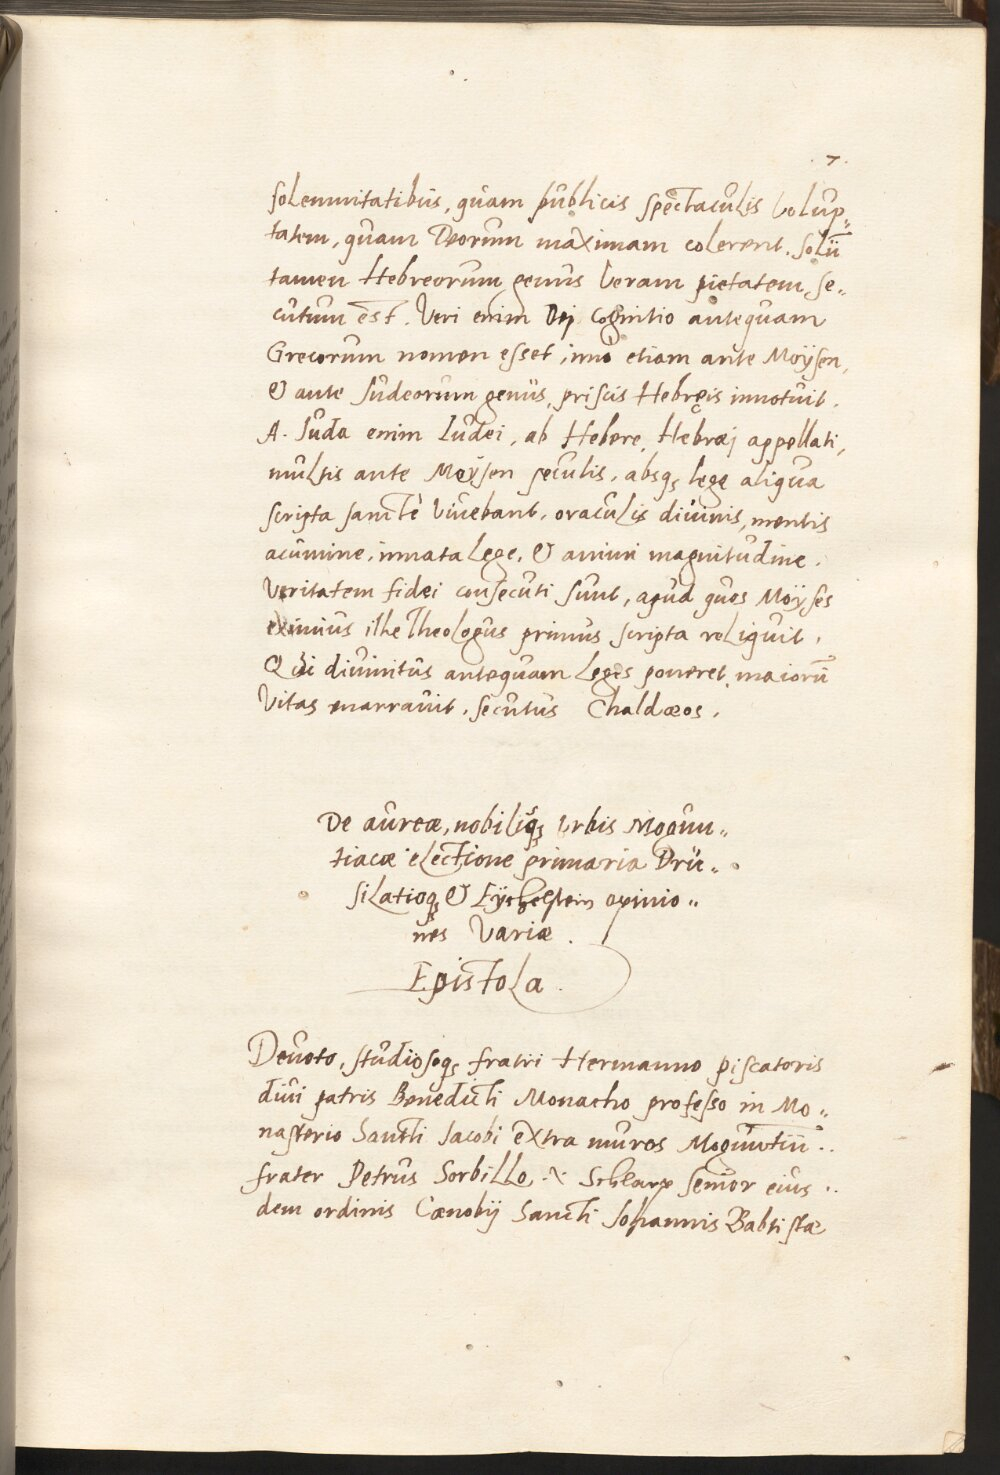 .7.
solennitatibus, quam publicis spectaculis volup„
tatem, quam Deorum maximam colerent. solū
tamen Hebreorum genus veram pietatem, se„
cutum est. Veri enim Dej cognitio antequam
Grecorum nomen esset, imo etiam ante Moÿsen,
& ante Iudeorum genus, priscis Hebręis innotuit.
A. Iuda enim Iudei, ab Hebere, Hebræj appellati,
multis ante Moÿsen seculis, absq; lege aliqua
scripta sanctè vivebant, oraculis divinis, mentis
acumine, innata lege, & animi magnitudine.
Veritatem fidei consecuti sunt, apud quos Moÿses
eximius ille Theologus primus scripta reliquit.
Qui divinitus antequam leges poneret, maiorū
vitas enarravit, secutus Chaldæos.
De aureæ, nobilisq; urbis Mogun„
tiacæ electione primaria Dru„
silatioq; & Eÿchelstein opinio„
nes variæ.
Epistola.
Devoto, studiosoq; fratri Hermanno piscatoris
divi patris Benedicti Monacho professo in Mo„
nasterio Sancti Jacobi extra muros Moguntiī„
frater Petrus Sorbillo Schlarp senior eius„
dem ordinis Cænobij Sancti Johannis Babtistæ